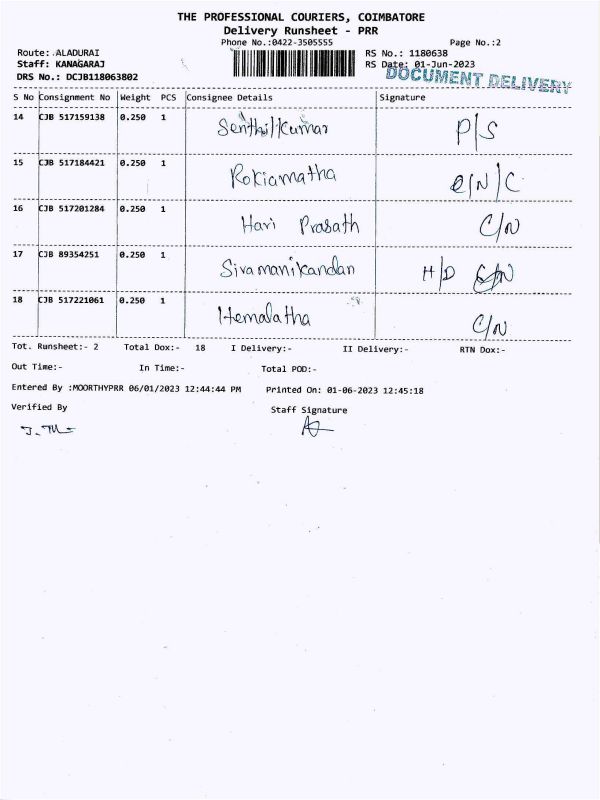 THE PROFESSIONAL COURIERS, COIMBATORE
Delivery Runsheet - PRR
Phone No.:0422-3505555 Page No.:2
Route: ALADURAI RS No.: 1180638
Staff: KANAGARAJ RS Date: 01-Jun-2023
DRS No.: DCJB118063802 DOCUMENT DELIVERY
S No Consignment No Weight PCS Consignee Details Signature
14 CJB 517159138 0.250 1 Senthil Kumar P/S
15 CJB 517184421 0.250 1 Rokiamatha C/N/C
16 CJB 517201284 0.250 1 Hari Prasath C/N
17 CJB 89354251 0.250 1 Sivamanikandan H/D C/N
18 CJB 517221061 0.250 1 Hemalatha C/N
Tot. Runsheet:- 2 Total Dox:- 18 I Delivery:- II Delivery:- RTN Dox:-
Out Time:- In Time:- Total POD:-
Entered By :MOORTHYPRR 06/01/2023 12:44:44 PM Printed On: 01-06-2023 12:45:18
Verified By Staff Signature